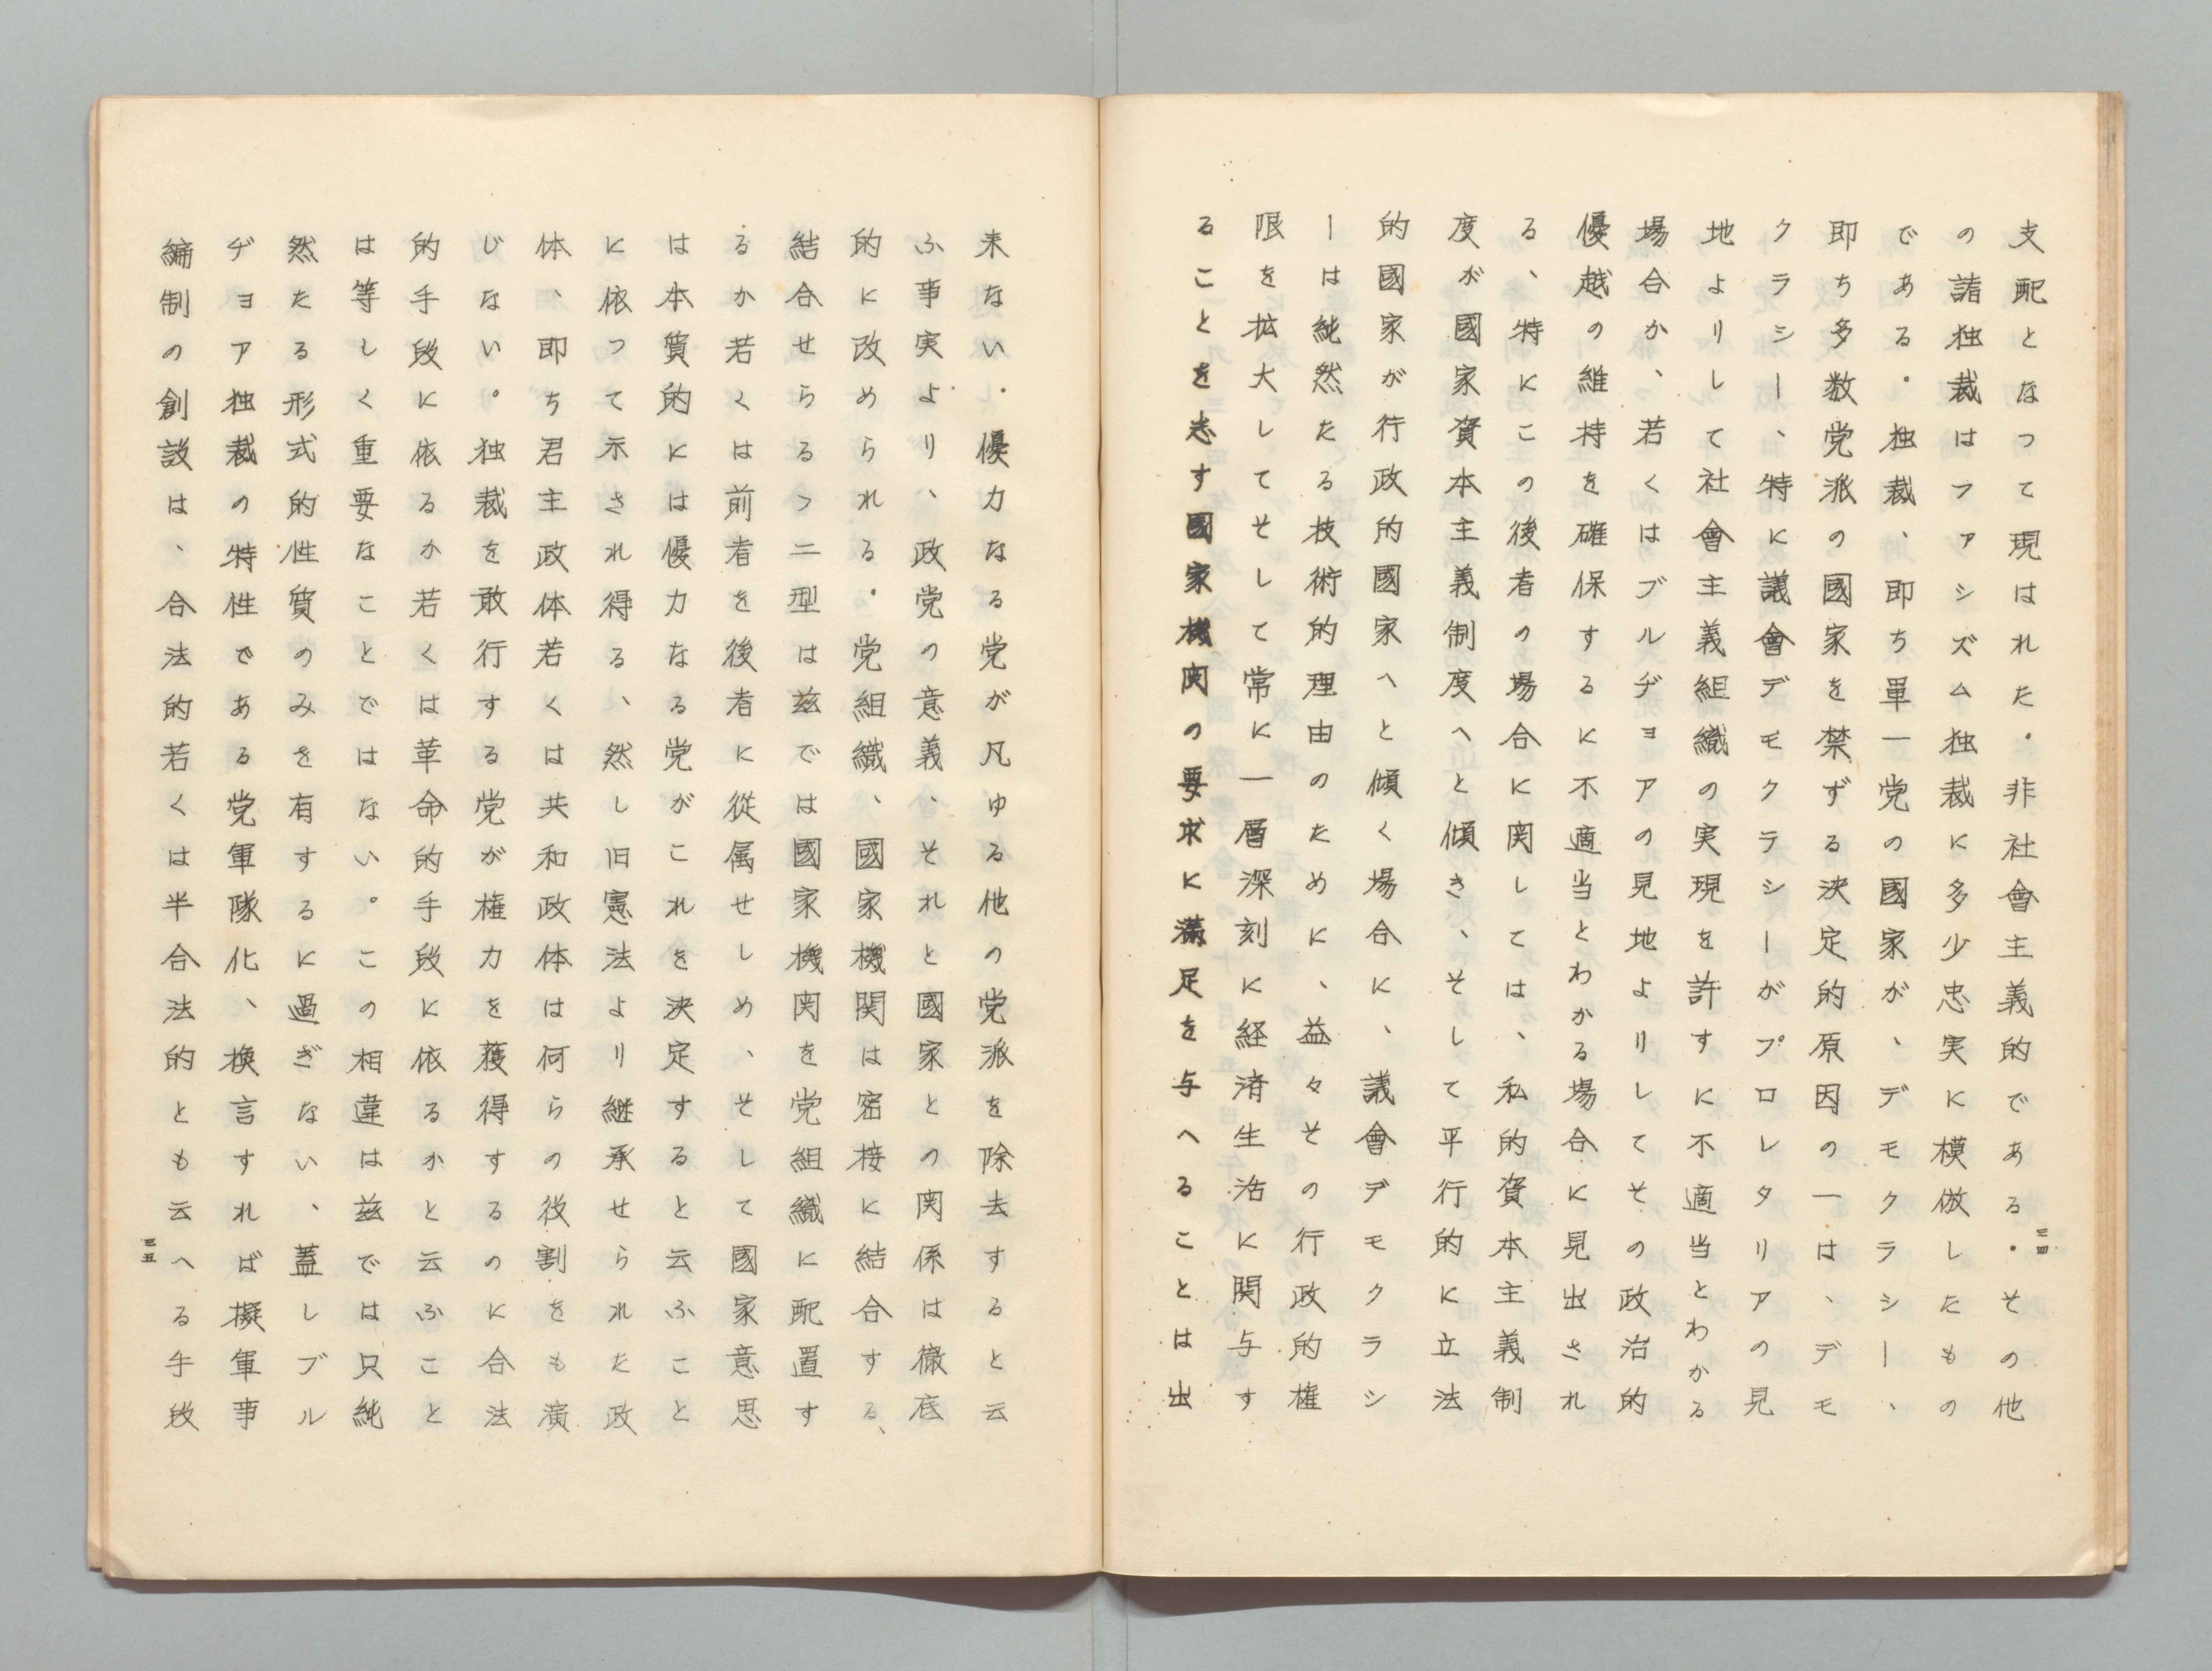 支配となって現はれた・非社會主義的である・その他
の諸独裁はファシズム独裁に多少忠実に模倣したもの
である・独裁、即ち単一党の國家が、デモクラシー、
即ち多数党派の國家を禁ずる決定的原因の一は、デモ
クラシー、特に議會デモクラシーがプロレタリアの見
地よりして社會主義組織の実現を許すに不適当とわかる
場合か、若くはブルヂョアの見地よりしてその政治的
優越の維持を確保するに不適当とわかる場合に見出され
る、特にこの後者の場合に関しては、私的資本主義制
度が國家資本主義制度へと傾き、そして平行的に立法
的國家が行政的國家へと傾く場合に、議會デモクラシ
ーは純然たる技術的理由のために、益々その行政的権
限を拡大してそして常に一層深刻に経済生活に関与す
ることを志す國家機関の要求に満足を与へることは出
三四
来ない・優力なる党が凡ゆる他の党派を除去すると云
ふ事実より、政党の意義、それと國家との関係は徹底
的に改められる・党組織、國家機関は密接に結合する、
結合せらるゝ二型は茲では國家機関を党組織に配置す
るか若くは前者を後者に從属せしめ、そして國家意思
は本質的には優力なる党がこれを決定すると云ふこと
に依って示され得る、然し旧憲法より継承せられた政
体、即ち君主政体若くは共和政体は何らの役割をも演
じない。独裁を敢行する党が権力を獲得するのに合法
的手段に依るか若くは革命的手段に依るかと云ふこと
は等しく重要なことではない。この相違は茲では只純
然たる形式的性質のみを有するに過ぎない、蓋しブル
ヂョア独裁の特性である党軍隊化、換言すれば擬軍事
編制の創設は、合法的若くは半合法的とも云へる手段
三五